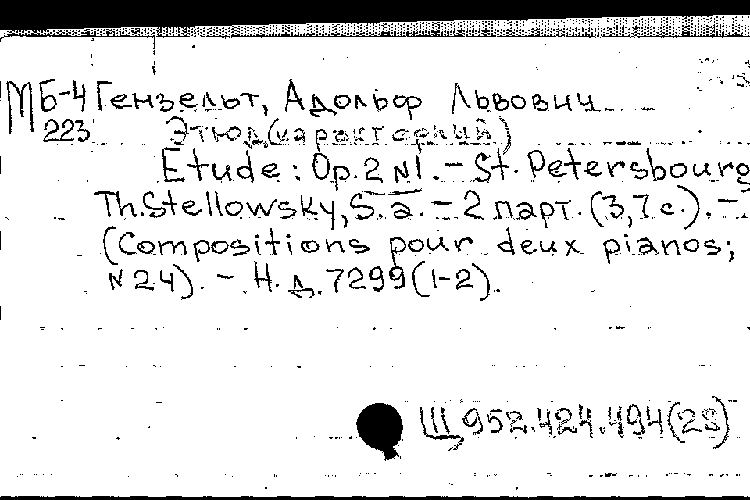 МБ-4 Гензельт, Адольф Львович
223 Этюд (характерный)
Etude: Op. 2 N1. - St. Petersbourg
Th. Stellowsky, S. a. - 2 парт. (3,7 с.). -
(Compositions pour deux pianos;
N 24). - Н. д. 7299 (1-2).
Щ 952.424.494(28)